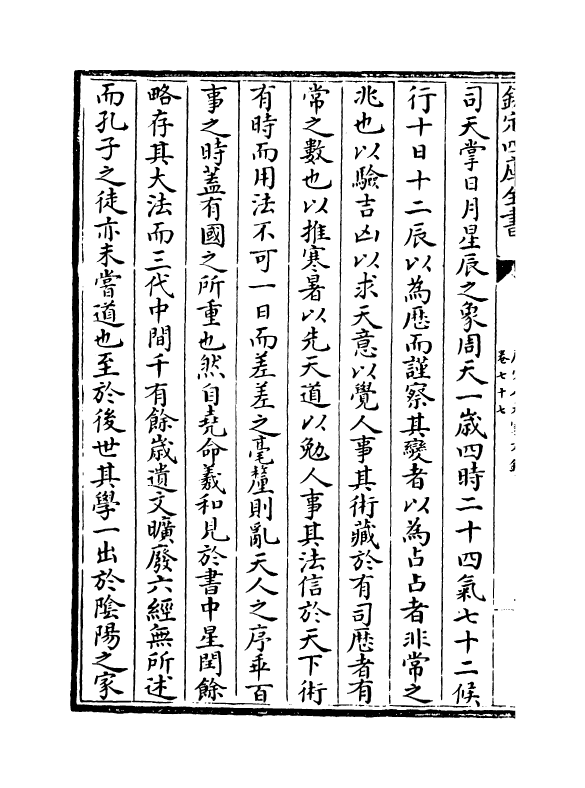 欽定四庫全書
卷七十七
司天掌日月星辰之象周天一歲四時二十四氣七十二候
行十日十二辰以為厯而謹察其變者以為占占者非常之
兆也以驗吉凶以求天意以覺人事其術藏於有司厯者有
常之數也以推寒暑以先天道以勉人事其法信於天下術
有時而用法不可一日而差差之毫釐則亂天人之序乖百
事之時蓋有國之所重也然自堯命羲和見於書中星閏餘
略存其大法而三代中間千有餘歲遺文曠廢六經無所述
而孔子之徒亦未嘗道也至於後世其學一出於陰陽之家